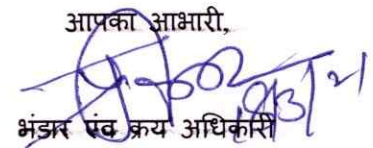 आपका आभारी,
भंडार एंव क्रय अधिकारी